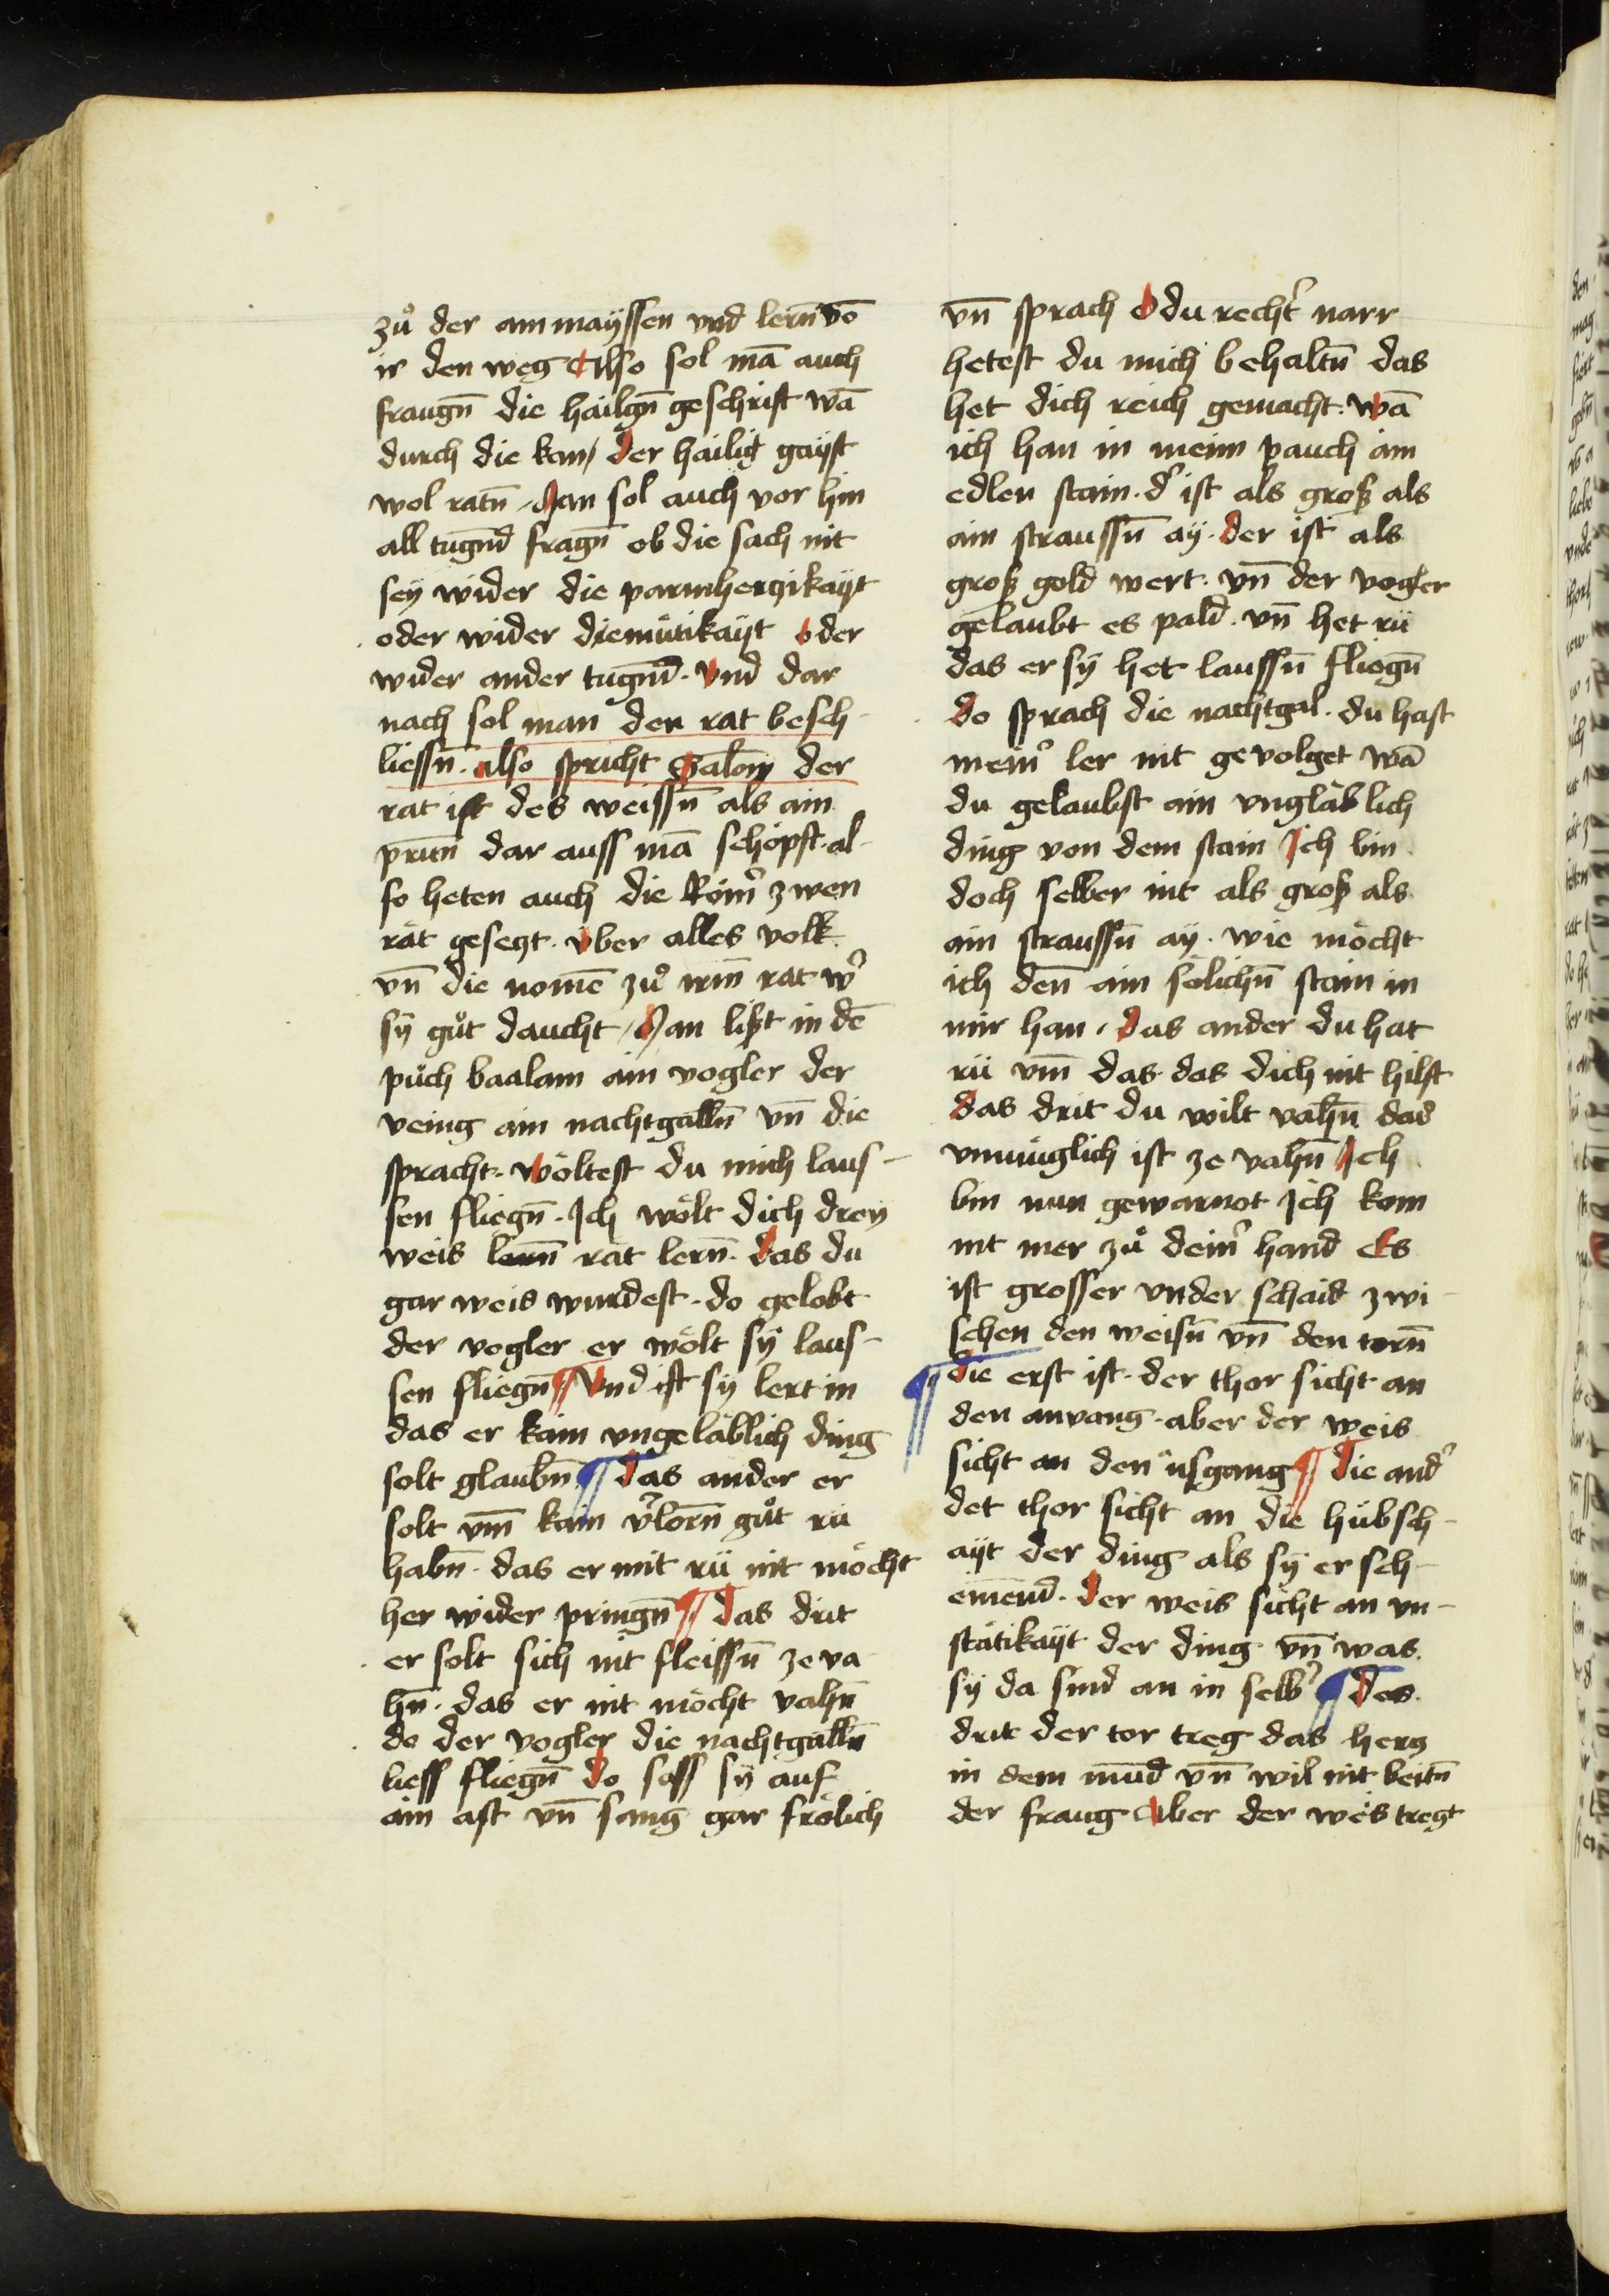 zuͦ der ammayssen vnd lern̄ vō
ir den weg Also sol mā auch
fraugn̄ die hailgn̄ geschrift wā
durch die kan der hailig gayst
wol ratn̄ Man sol auch vor hin
all tugn̄d fragn̄ ob die sach nit
sey wider die parmherczikayt
oder wider diemütikayt oder
wider ander tugn̄d · vnd dar
nach sol man den rat besch
liessn̄ · also spricht Salom̄ der
rat ist des weissn̄ als ain
prun̄ dar auss mā schöpft · al-
so heten auch die Röm̉ zwen
rät geseczt · vber alles volk
vn̄ die nomē zuͦ irm̄ rat w̉
sy guͦt daucht / Man lißt in dē
puͦch baalam ain vogler der
veing ain nachtgalln̄ vn̄ die
spracht · wöltest du mich laus-
sen fliegn̄ · Ich wölt dich drey
weis lern̄ rät lern̄ · das du
gar weis wurdest · do gelobt
der vogler er wölt sy laus-
sen fliegn̄ ¶ Vnd ist sy lert in
das er kain vngeläblich ding
solt glaubn̄ ¶ Das ander er
solt vm̄ kain v̉lorn̄ guͦt rü
habn̄ · das er mit rü nit möcht
her wider pringn̄ ¶ Das drit
er solt sich nit fleissn̄ ze va
hn̄ · das er nit möcht vahn̄
do der vogler die nachtgalln̄
liess fliegn̄ do sass sy auf
ain ast vn̄ sang gar frölich
vn̄ sprach O du recht̉ narr
hetest du mich behaltn̄ das
het dich reich gemacht · wā
ich han in meim pauch ain
edlen stain · d̉ ist als groß als
ain straussn̄ ay · der ist als
groß gold wert · vn̄ der vogler
gelaubt es pald · vn̄ het rü
das er sy het laussn̄ fliegn̄
do sprach die nachtgal · du hast
mein̉ ler nit gevolget wā
du gelaubst ain vngläblich
ding von dem stain Ich bin
doch selber nit als groß als
ain straussn̄ ay · wie möcht
ich den̄ ain sölichn̄ stain in
mir han · das ander du hat
rü vm̄ das · das dich nit hilft
das drit du wilt vahn̄ das
vnmüglich ist ze vahn̄ Ich
bin nun gewarnot Ich kom
nit mer zuͦ dein̉ hand Es
ist grosser vnder schaid zwi
schen den weisn̄ vn̄ den torn̄
¶ die erst ist · der thor sicht an
den anvang · aber der weis
sicht an den usgang ¶ Die and̉
det thor sicht an die hübsch-
ayt der ding als sy er sch-
einend · Der weis sicht an vn-
stätikayt der ding vn̄ was
sy da sind an in selb̉ ¶ Das
drit der tor treg das hercz
in dem mūd vn̄ wil nit beitn̄
der fraug Aber der weis tregt